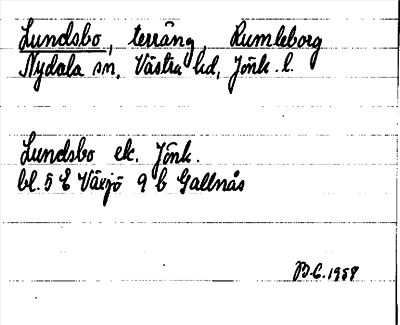 Lundsbo, terräng, Rumleborg
Nydala sn, Västra hd, Jönk. l.
Lundsbo ek. Jönk.
bl. 5 E Växjö 9 b Gallnås
B.C. 1958